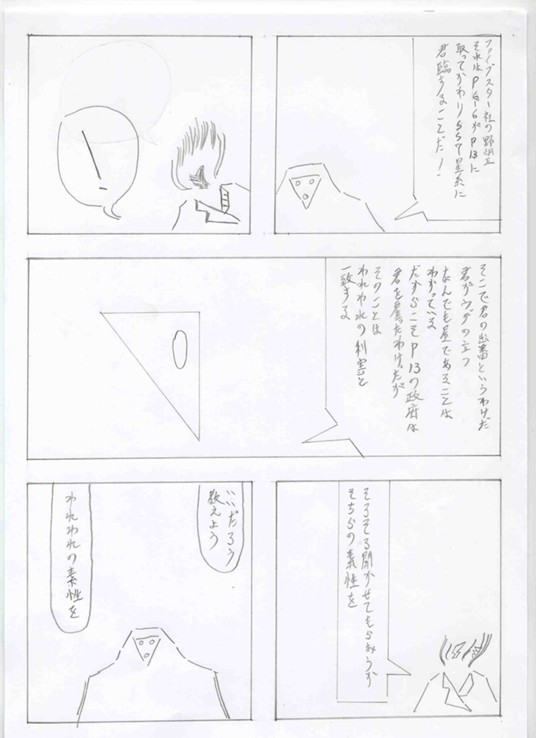 ファイブスター社の野望
それはP6-6がP13に
取ってかわりSS7星系に
君臨することだ!
!
そこで君の出番というわけだ
君がウデの立つ
なんでも屋であることは
わかっている
だからこそP13の政府は
君を雇ったわけだが
そのことは
われわれの利害と
一致する
そろそろ聞かせてもらおうか
そちらの素性を
いいだろう
教えよう
われわれの素性を